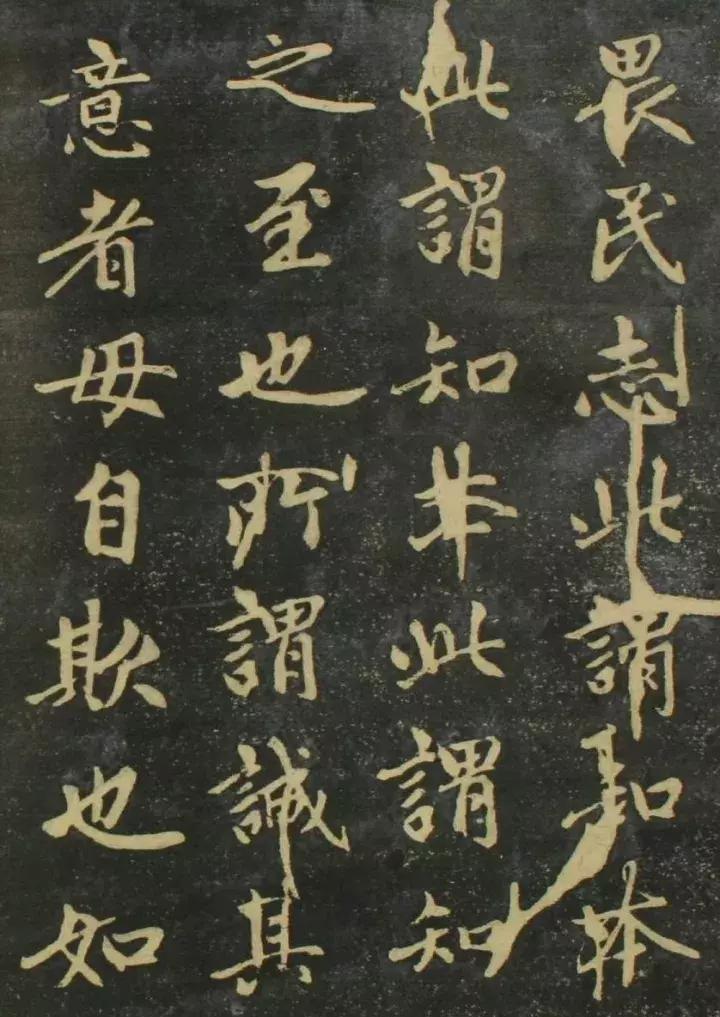 畏民志此謂知本
此謂知本此謂知
之至也所謂誠其
意者毋自欺也如